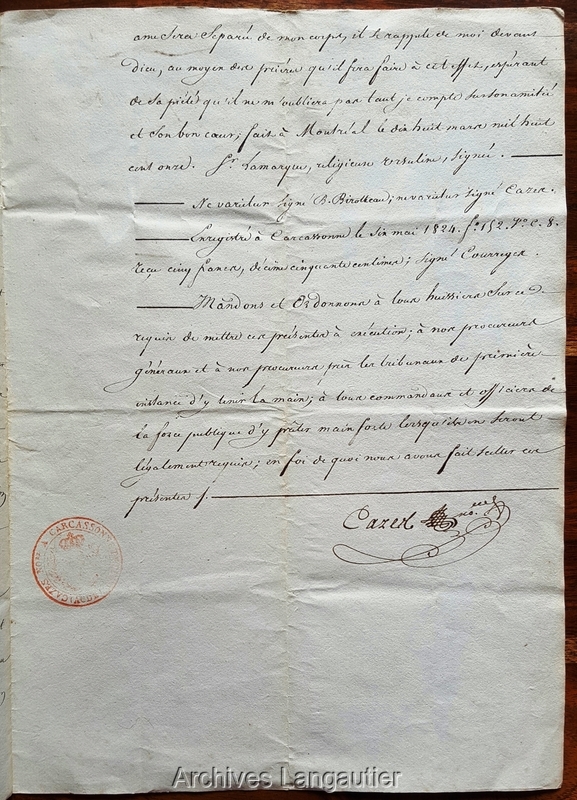 ame sera séparé de mon corps, il se rappele de moi devant
dieu, au moyen des prières qu'il fera faire à cet effet, espérant
de sa piété qu'il ne m'oubliera pas tant je compte sur son amitié
et son bon cœur; fait à Montréal le dix huit mars mil huit
cent onze. St Lamarque, religieuse ursuline, signée.
Ne varietur signé B. Birotteau; ne varietur signé Cazes.
Enregistré à Carcassonne le six mai 1824. fo 152. Vo c. 8.
reçu cinq francs, décime cinquante centimes; signé Courrejes.
Mandons et Ordonnons à tous huissiers sur ce
requis de mettre ces présentes à exécution; à nos procureurs
généraux et à nos procureurs près les tribunaux de première
instance d'y tenir la main; à tous commandans et officiers de
la force publique d'y prêter main forte lorsqu'ils en seront
légalement requis; en foi de quoi nous avons fait sceller ces
présentes /.
Cazes no.re
A CARCASSONNE
Archives Langautier